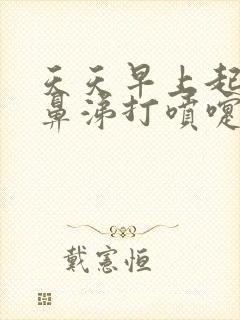 天天早上起
鼻涕打噴嚏
戴憲恒